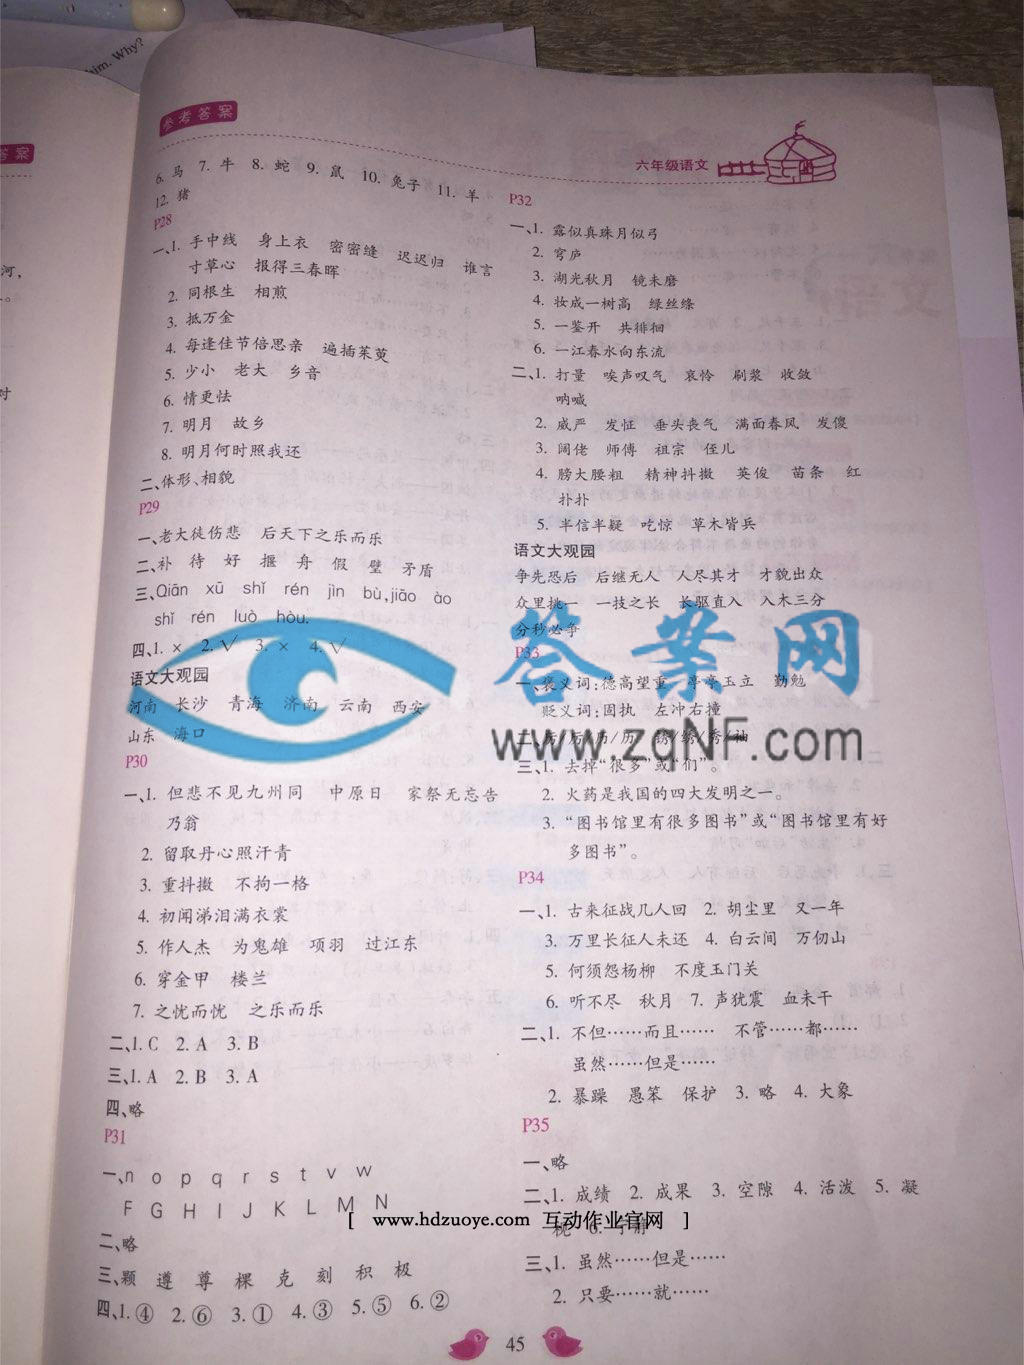 him. Why?
答案
河,
对
参考答案
六年级语文
6. 马 7. 牛 8. 蛇 9. 鼠 10. 兔子 11. 羊
12. 猪
P28
一、1. 手中线 身上衣 密密缝 迟迟归 谁言
寸草心 报得三春晖
2. 同根生 相煎
3. 抵万金
4. 每逢佳节倍思亲 遍插茱萸
5. 少小 老大 乡音
6. 情更怯
7. 明月 故乡
8. 明月何时照我还
二、体形、相貌
P29
一、老大徒伤悲 后天下之乐而乐
二、补 待 好 揠 舟 假 璧 矛盾
三、Qiān xū shǐ rén jìn bù, jiāo ào
shǐ rén luò hòu.
四、1. × 2. √ 3. × 4. √
语文大观园
河南 长沙 青海 济南 云南 西安
山东 海口
P30
一、1. 但悲不见九州同 中原日 家祭无忘告
乃翁
2. 留取丹心照汗青
3. 重抖擞 不拘一格
4. 初闻涕泪满衣裳
5. 作人杰 为鬼雄 项羽 过江东
6. 穿金甲 楼兰
7. 之忧而忧 之乐而乐
二、1. C 2. A 3. B
三、1. A 2. B 3. A
四、略
P31
一、n o p q r s t v w
F G H I J K L M N
二、略
三、颗 遵 尊 棵 克 刻 积 极
四、1. ④ 2. ⑥ 3. ① 4. ③ 5. ⑤ 6. ②
P32
一、1. 露似真珠月似弓
2. 穹庐
3. 湖光秋月 镜未磨
4. 妆成一树高 绿丝绦
5. 一鉴开 共徘徊
6. 一江春水向东流
二、1. 打量 唉声叹气 哀怜 刷浆 收敛
呐喊
2. 威严 发怔 垂头丧气 满面春风 发傻
3. 阔佬 师傅 祖宗 侄儿
4. 膀大腰粗 精神抖擞 英俊 苗条 红
扑扑
5. 半信半疑 吃惊 草木皆兵
语文大观园
争先恐后 后继无人 人尽其才 才貌出众
众里挑一 一技之长 长驱直入 入木三分
分秒必争
P33
一、褒义词:德高望重 亭亭玉立 勤勉
贬义词:固执 左冲右撞
二、
三、1. 去掉“很多”或“们”。
2. 火药是我国的四大发明之一。
3. “图书馆里有很多图书”或“图书馆里有好
多图书”。
P34
一、1. 古来征战几人回 2. 胡尘里 又一年
3. 万里长征人未还 4. 白云间 万仞山
5. 何须怨杨柳 不度玉门关
6. 听不尽 秋月 7. 声犹震 血未干
二、1. 不但……而且…… 不管……都……
虽然……但是……
2. 暴躁 愚笨 保护 3. 略 4. 大象
P35
一、略
二、1. 成绩 2. 成果 3. 空隙 4. 活泼 5. 凝
视 6. 宁静
三、1. 虽然……但是……
2. 只要……就……
45
答案网
www.zqNF.com
[ www.hdzuoye.com 互动作业官网 ]